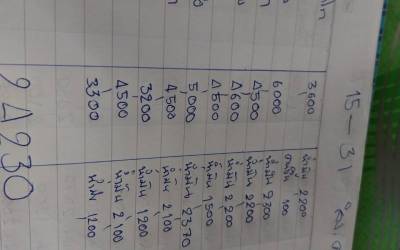 15 – 31
3,600 น้ำมัน 2200
100
6000 น้ำมัน 2300
4500 น้ำมัน 2200
4600 น้ำมัน 2,200
4500 น้ำมัน 1500
5,000 น้ำมัน 2370
4500 น้ำมัน 2100
3200 น้ำมัน 1200
4500 น้ำมัน 2100
3300 น้ำมัน 1200
24230